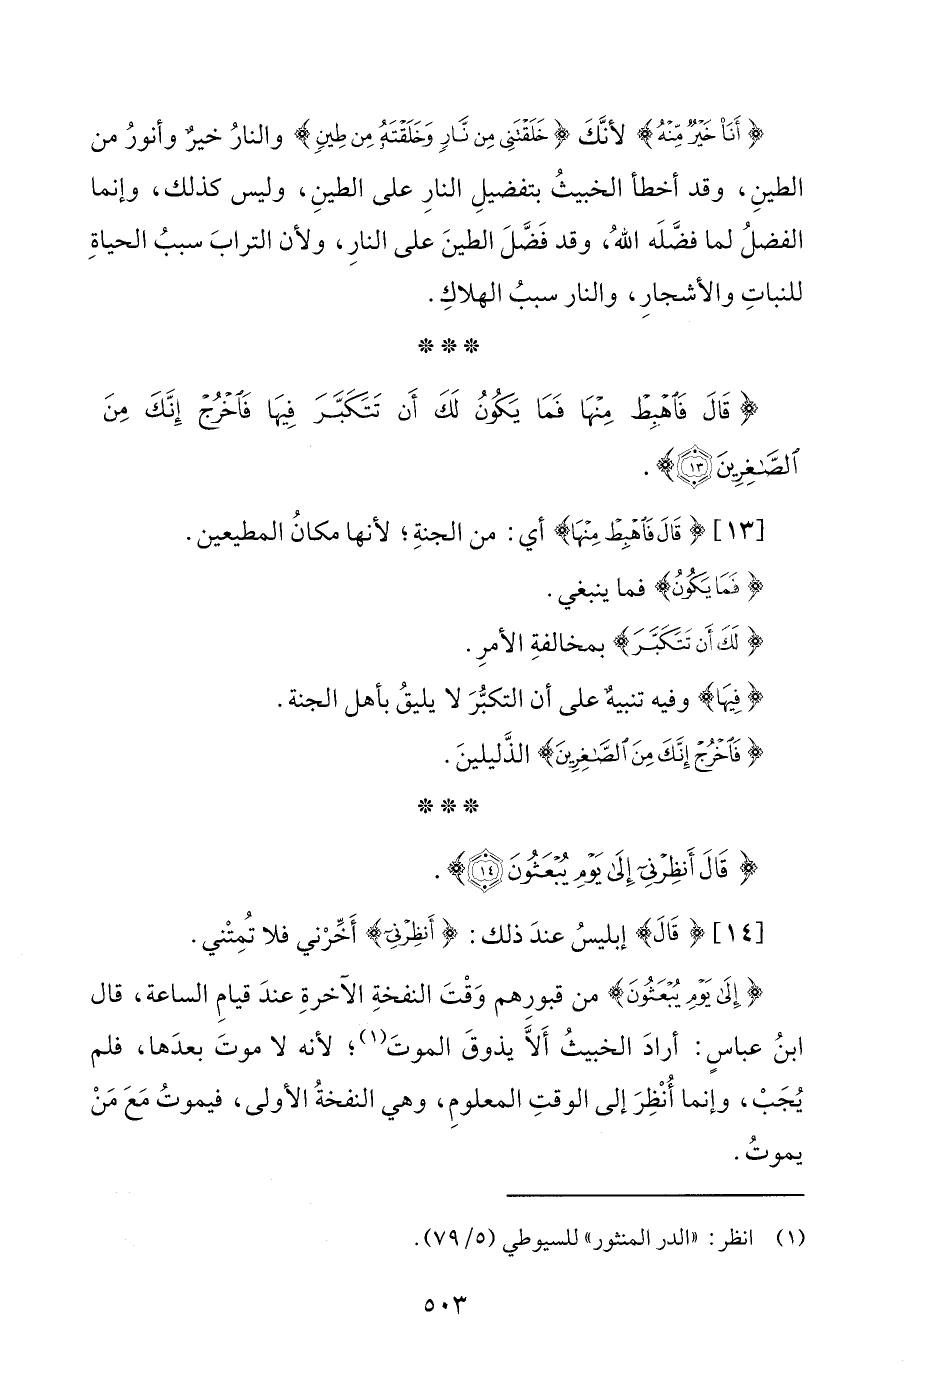 ﴿أَنَا۠ خَيْرٌ مِّنْهُ﴾ لأنَّكَ ﴿خَلَقْتَنِى مِن نَّارٍ وَخَلَقْتَهُۥ مِن طِينٍ﴾ والنارُ خيرٌ وأنورُ من
الطينِ، وقد أخطأ الخبيثُ بتفضيلِ النارِ على الطينِ، وليس كذلك، وإنما
الفضلُ لما فضَّلَه اللهُ، وقد فَضَّلَ الطينَ على النارِ، ولأن الترابَ سببُ الحياةِ
للنباتِ والأشجارِ، والنار سببُ الهلاكِ.
* * *
﴿قَالَ فَٱهْبِطْ مِنْهَا فَمَا يَكُونُ لَكَ أَن تَتَكَبَّرَ فِيهَا فَٱخْرُجْ إِنَّكَ مِنَ
ٱلصَّٰغِرِينَ ١٣﴾.
[١٣] ﴿قَالَ فَٱهْبِطْ مِنْهَا﴾ أي: من الجنةِ؛ لأنها مكانُ المطيعين.
﴿فَمَا يَكُونُ﴾ فما ينبغي.
﴿لَكَ أَن تَتَكَبَّرَ﴾ بمخالفةِ الأمرِ.
﴿فِيهَا﴾ وفيه تنبيهٌ على أن التكبُّرَ لا يليقُ بأهل الجنة.
﴿فَٱخْرُجْ إِنَّكَ مِنَ ٱلصَّٰغِرِينَ﴾ الذَّليلينَ.
* * *
﴿قَالَ أَنظِرْنِىٓ إِلَىٰ يَوْمِ يُبْعَثُونَ ١٤﴾.
[١٤] ﴿قَالَ﴾ إبليسُ عندَ ذلك: ﴿أَنظِرْنِىٓ﴾ أَخِّرْني فلا تُمِتْني.
﴿إِلَىٰ يَوْمِ يُبْعَثُونَ﴾ من قبورِهم وَقْتَ النفخةِ الآخرةِ عندَ قيامِ الساعة، قال
ابنُ عباسٍ: أرادَ الخبيثُ أَلاَّ يذوقَ الموتَ(١)؛ لأنه لا موتَ بعدَها، فلم
يُجَبْ، وإنما أُنْظِرَ إلى الوقتِ المعلومِ، وهي النفخةُ الأولى، فيموتُ مَعَ مَنْ
يموتُ.
(١) انظر: «الدر المنثور» للسيوطي (٥/ ٧٩).
٥٠٣